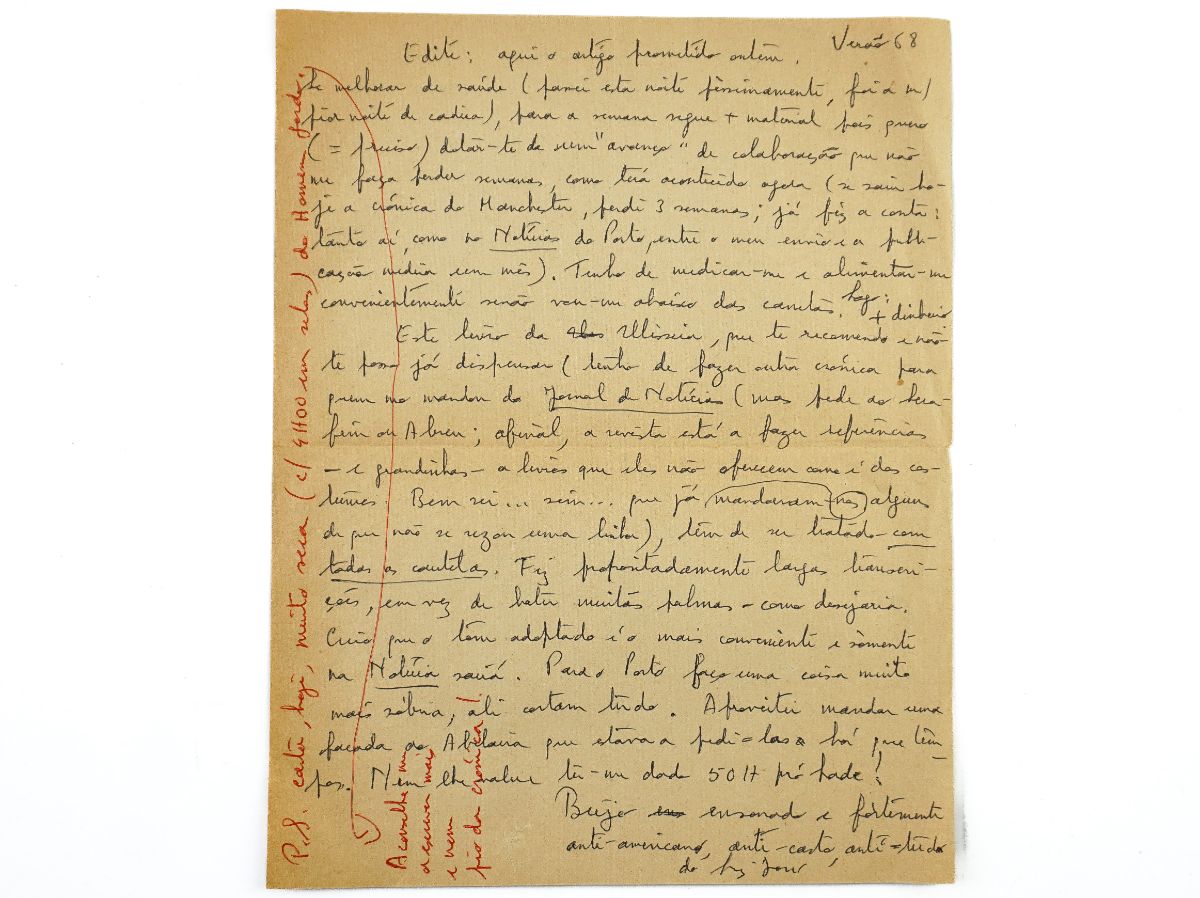 Verão 68
Edite: aqui o artigo prometido ontem.
Se melhorar de saúde (passei esta noite pèssimamente, foi a m/
pior noite de cadeia), para a semana segue + material pois quero
(= preciso) dotar-te de um "avanço" de colaboração que não
me faça perder semanas, como terá acontecido agora (se saiu ho-
je a crónica do Manchester, perdi 3 semanas; já fiz a conta:
tanto aí, como no Notícias do Porto, entre o meu envio e a publi-
cação medeia um mês). Tenho de medicar-me e alimentar-me
convenientemente senão vou-me abaixo das canetas. Logo:
+ dinheiro
Este livro da Ulisseia, que te recomendo e não
te posso já dispensar (tenho de fazer outra crónica para
quem mo mandou do Jornal de Notícias (mas pede ao Sera-
fim ou Abreu; afinal, a revista está a fazer referências
- e grandinhas - a livros que eles não oferecem como é dos cos-
tumes. Bem sei... sim... que já mandaram-nos alguns
de que não se rezou uma linha), tem de ser tratado com
todas as cautelas. Fiz propositadamente largas transcri-
ções, em vez de bater muitas palmas - como desejaria.
Creio que o tom adoptado é o mais conveniente e sòmente
na Notícia sairá. Para o Porto faço uma coisa muito
mais sóbria, ali cortam tudo. Aproveitei mandar uma
facada ao Abelaira que estava a pedi-las há que tem-
pos. Nem lhe valeu ter-me dado 50$ pró bade!
Beijo ensonado e fortemente
anti-americano, anti-casto, anti-tudo
do
P.S. carta, hoje, muito seca (c/ 4$00 em selos) do Homem
Aconselha-me
a escrever mais
e nem
pio da crónica!